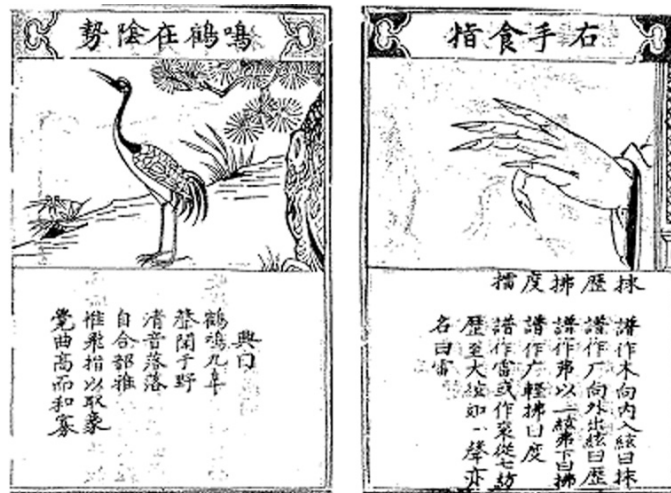 右手食指
抹歷拂度擂
譜作木向內入絃曰抹
譜作厂向外出絃曰歷
譜作弗以一二絃弗下曰拂
譜作广輕拂曰度
譜作雷或作從七
歷至大絃如一聲亦
名曰雷
鳴鶴在陰勢
興曰
鶴鳴九皋
聲聞于野
清音落落
自合韶雅
惟飛指以取象
覺曲高而和寡